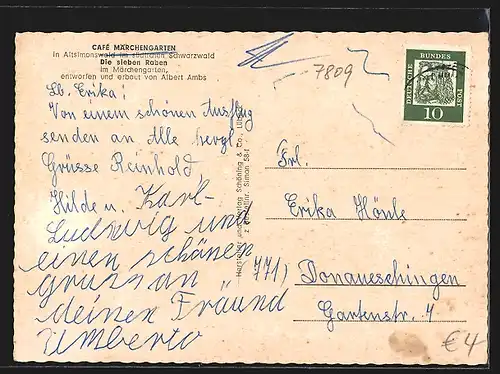 CAFÉ MÄRCHENGARTEN
in Altsimonswald im südlichen Schwarzwald
Die sieben Raben
im Märchengarten,
entworfen und erbaut von Albert Ambs
Lb. Erika!
Von einem schönen Ausflug
senden an Alle herzl.
Grüsse Reinhold,
Hilde u. Karl-
Ludwig und
einen schönen
gruss an
deinen Fräund
Umberto
7809
DEUTSCHE BUNDES POST
10
Frl.
Erika Hönle
7710 Donaueschingen
Gartenstr. 4
€4